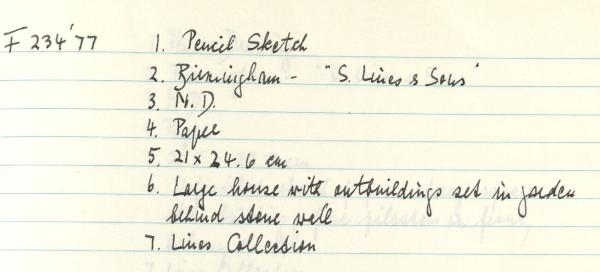 F 234'77 1. Pencil Sketch
2. Birmingham - "S. Lines & Sons"
3. N.D.
4. Paper
5. 21 x 24.6 cm
6. Large house with outbuildings set in garden
behind stone wall
7. Lines Collection